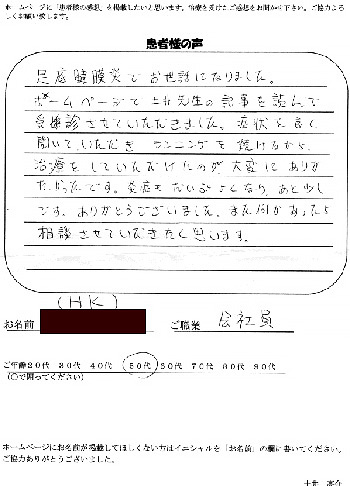 ホームページに「患者様の感想」を掲載したいと思います。治療を受けたご感想をお聞かせ下さい。ご協力よろ
しくお願い致します。
患者様の声
足底腱膜炎でお世話になりました。
ホームページで土井先生の記事を読んで
受診させていただきました。症状を良く
聞いていただき ランニングを続けながら
治療をしていただけたのが大変にありが
たかったです。炎症もだいぶよくなり、あと少し
です。ありがとうございました。また何かあったら
相談させていただきたく思います。
(HK)
お名前
ご職業 会社員
ご年齢20代 30代 40代 50代 60代 70代 80代 90代
(○で囲ってください)
ホームページにお名前が掲載してほしくない方はイニシャルを「お名前」の欄に書いてください。
ご協力ありがとうございました。